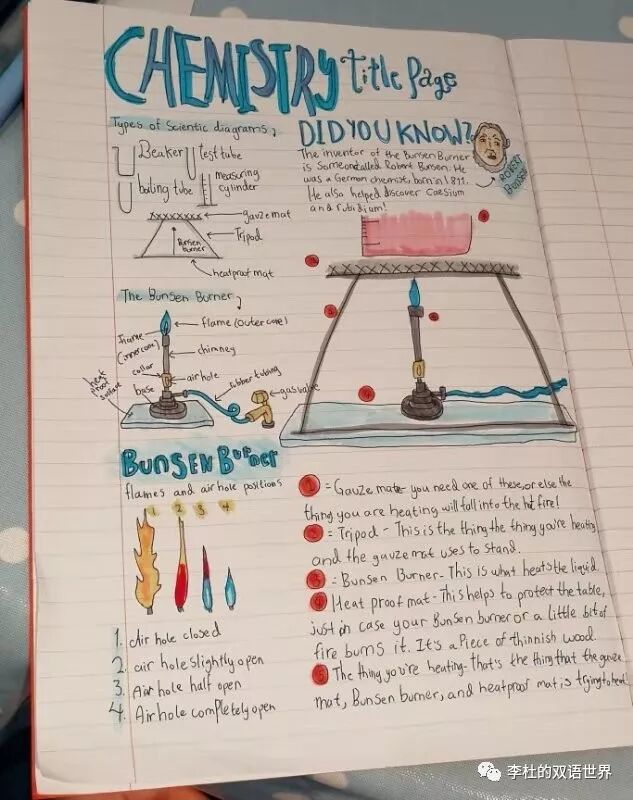 CHEMISTRY title Page
Types of Scientic diagrams,
Beaker
test tube
boiling tube
measuring
cylinder
gauze mat
Tripod
Bunsen
burner
heatproof mat
The Bunsen Burner,
flame (outer cone)
flame
(inner cone)
chimney
collar
air hole
rubber tubing
gas valve
base
heat
proof
surface
BUNSEN Burner
flames and air hole positions
1 2 3 4
1. Air hole closed
2. air hole slightly open
3. Air hole half open
4. Air hole completely open
DID YOU KNOW?
The inventor of the Bunsen Burner
is Someone called Robert Bunsen. He
was a German chemist, born in 1811.
He also helped discover Caesium
and rubidium!
ROBERT
BUNSEN
1 = Gauze mat - you need one of these, or else the
thing you are heating will fall into the hot fire!
2 = Tripod - This is the thing the thing you're heating
and the gauze mat uses to stand.
3 = Bunsen Burner - This is what heats the liquid.
4 Heat proof mat - This helps to protect the table,
just in case your Bunsen burner or a little bit of
fire burns it. It's a Piece of thinnish wood.
5 The thing you're heating - that's the thing that the gauze
mat, Bunsen burner, and heatproof mat is trying to heat.
李杜的双语世界